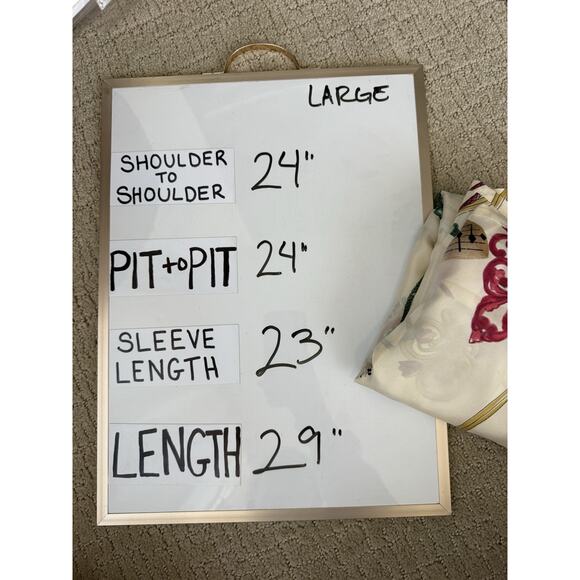 LARGE
SHOULDER
TO
SHOULDER
24"
PIT to PIT
24"
SLEEVE
LENGTH
23"
LENGTH
29"